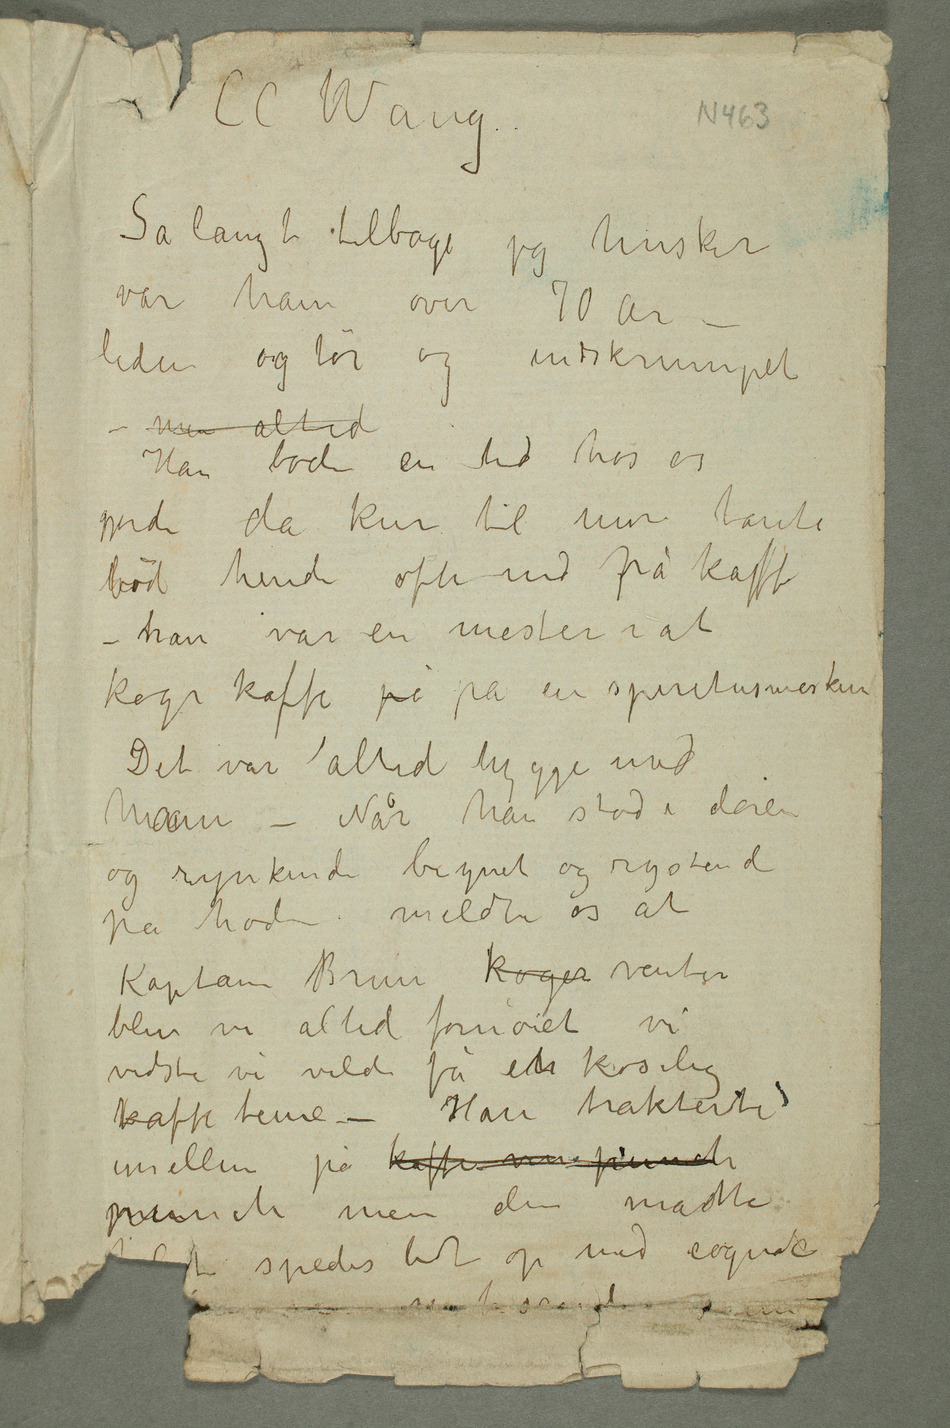 CC Wang..
N463
Sa langt tilbage jeg husker
var ham over 70 år –
liden og tør og indskrumpet
– men altid
Han bode en tid hos os
gjorde da kur til min tante
bød hende ofte ind på kaffe
– han var en mester i at
koge kaffe på på en spiritusmaskin
Det var altid hygge med
ham – Når han stod i døren
og rynkende begynet og rystend
på hodet meldte os at
Kaptain Brun koger venter
blev vi altid fornøiet vi
vidste vi vilde få en koselig
kaffe time – Han trakterte
imellem på kaffe men punch
punch men den måtte
spedes lidt op med cognac